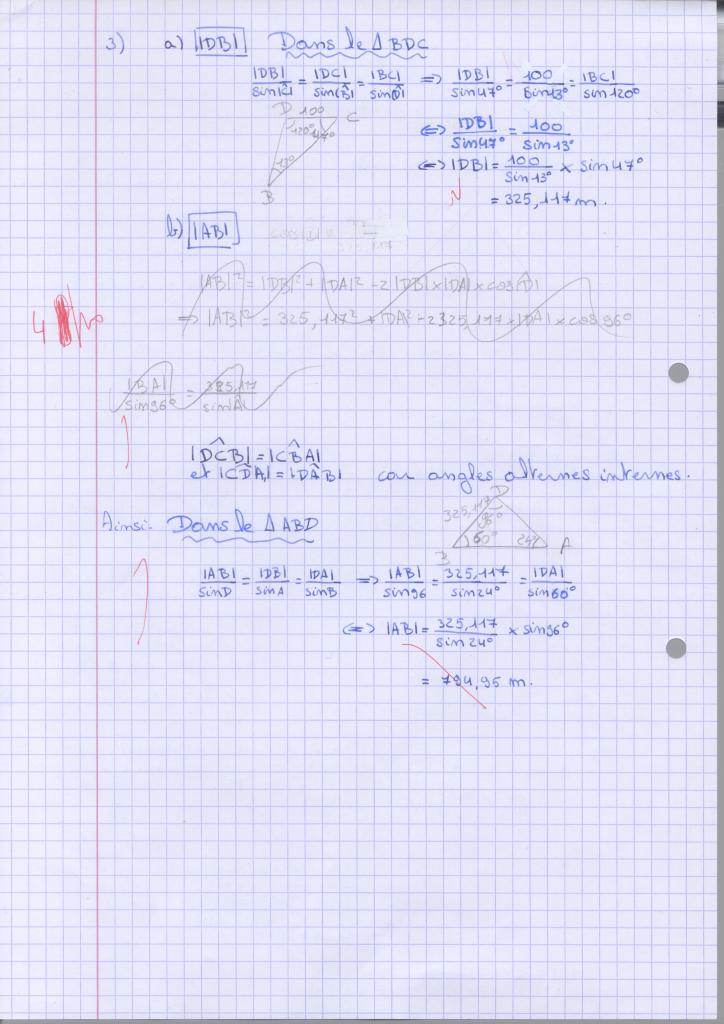 3) a) |DB| Dans le Δ BDC
|DB|/sin|Ĉ| = |DC|/sin|B̂| = |BC|/sin|D̂| => |DB|/sin47° = 100/sin13° = |BC|/sin120°
D 100 C
120° 47°
13°
B
<=> |DB|/sin47° = 100/sin13°
<=> |DB| = 100/sin13° × sin47°
= 325,117 m.
b) |AB|
|AB|² = |DB|² + |DA|² - 2|DB|×|DA|×cos|D̂|
=> |AB|² = 325,117² + |DA|² - 2325,117×|DA|×cos96°
4
|BA|/sin96° = 325,117/sinÂ
|DĈB| = |CB̂A|
et |CD̂A| = |DÂB| car angles alternes internes.
Ainsi: Dans le Δ ABD
D
325,117 96°
60° 24°
B A
|AB|/sinD = |DB|/sinA = |DA|/sinB => |AB|/sin96 = 325,117/sin24° = |DA|/sin60°
<=> |AB| = 325,117/sin24° × sin96°
= 794,95 m.